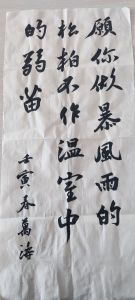 願你做暴風雨的
松柏不作溫室中
的弱苗
壬寅春萬海